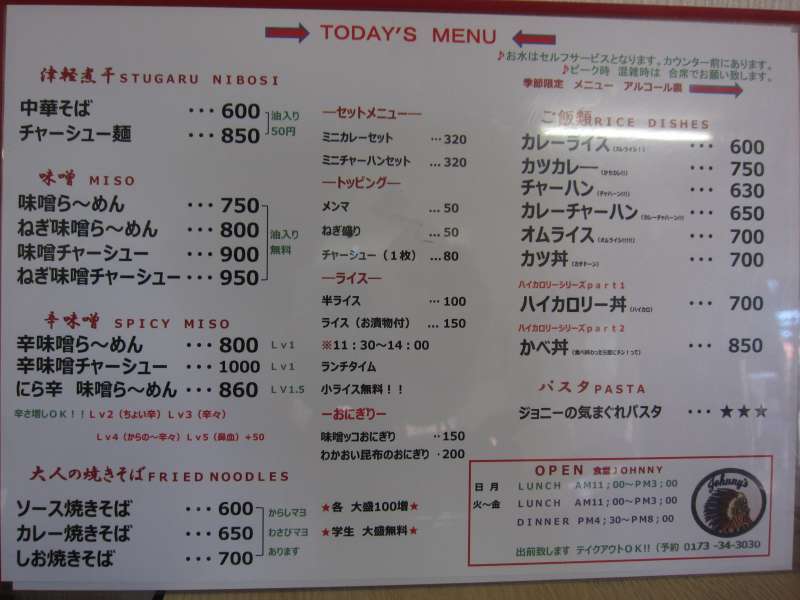 TODAY'S MENU
♪お水はセルフサービスとなります。カウンター前にあります。
♪ピーク時 混雑時は 合席でお願い致します。
季節限定 メニュー アルコール裏
津軽煮干 STUGARU NIBOSI
中華そば ・・・ 600
チャーシュー麺 ・・・ 850
油入り
50円
味噌 MISO
味噌ら〜めん ・・・ 750
ねぎ味噌ら〜めん ・・・ 800
味噌チャーシュー ・・・ 900
ねぎ味噌チャーシュー ・・・ 950
油入り
無料
辛味噌 SPICY MISO
辛味噌ら〜めん ・・・ 800 Lv1
辛味噌チャーシュー ・・・ 1000 Lv1
にら辛 味噌ら〜めん ・・・ 860 LV1.5
辛さ増しOK!!Lv2(ちょい辛)Lv3(辛々)
Lv4(からの〜辛々)Lv5(鼻血)+50
大人の焼きそば FRIED NOODLES
ソース焼きそば ・・・ 600
カレー焼きそば ・・・ 650
しお焼きそば ・・・ 700
からしマヨ
わさびマヨ
あります
―セットメニュー―
ミニカレーセット ・・・ 320
ミニチャーハンセット ・・・ 320
―トッピング―
メンマ ... 50
ねぎ盛り ... 50
チャーシュー(1枚) ... 80
―ライス―
半ライス ・・・ 100
ライス(お漬物付) ... 150
※11:30〜14:00
ランチタイム
小ライス無料!!
―おにぎり―
味噌ッコおにぎり ・・150
わかおい昆布のおにぎり ・200
★各 大盛100増★
★学生 大盛無料★
ご飯類 RICE DISHES
カレーライス ・・・ 600
カツカレー ・・・ 750
チャーハン(チャハーン!!!) ・・・ 630
カレーチャーハン(カレーチャハーン!!) ・・・ 650
オムライス(オムライシ!!!!!) ・・・ 700
カツ丼 ・・・ 700
ハイカロリーシリーズpart1
ハイカロリー丼(ハイカロ) ・・・ 700
ハイカロリーシリーズpart2
かべ丼 ・・・ 850
パスタ PASTA
ジョニーの気まぐれパスタ ・・・ ★★★
OPEN 食堂JOHNNY
日 月 LUNCH AM11;00〜PM3;00
火〜金 LUNCH AM11;00〜PM3;00
DINNER PM4;30〜PM8;00
出前致します テイクアウトOK!!(予約 0173-34-3030
Johnny's